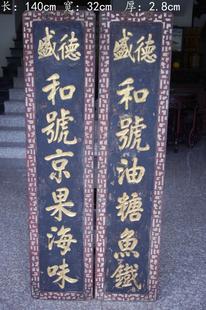 长：140cm 宽：32cm 厚：2.8cm
德盛
和號油糖魚鐵
德盛
和號京果海味